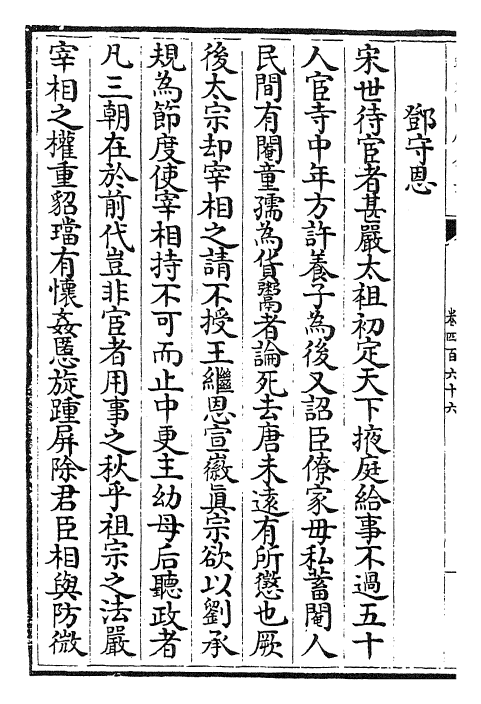 鄧守恩
宋世待宦者甚嚴太祖初定天下掖庭給事不過五十
人宦寺中年方許養子為後又詔臣僚家毋私蓄閹人
民間有閹童孺為貨鬻者論死去唐未遠有所懲也厥
後太宗却宰相之請不授王繼恩宣徽眞宗欲以劉承
規為節度使宰相持不可而止中更主幼母后聽政者
凡三朝在於前代豈非宦者用事之秋乎祖宗之法嚴
宰相之權重貂璫有懷姦慝旋踵屏除君臣相與防微
卷四百六十六